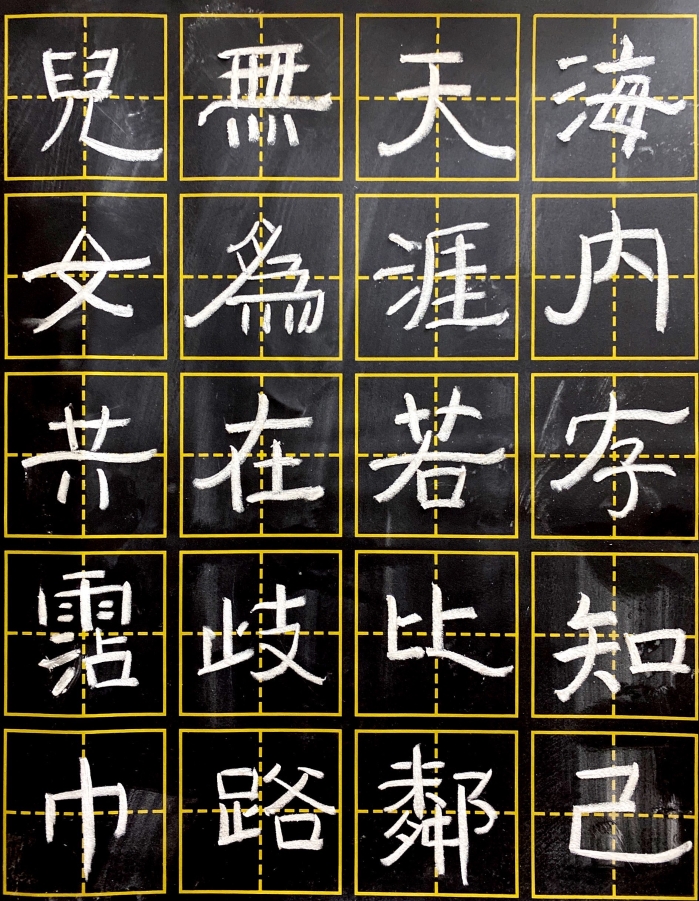 海内存知己
天涯若比鄰
無為在歧路
兒女共霑巾